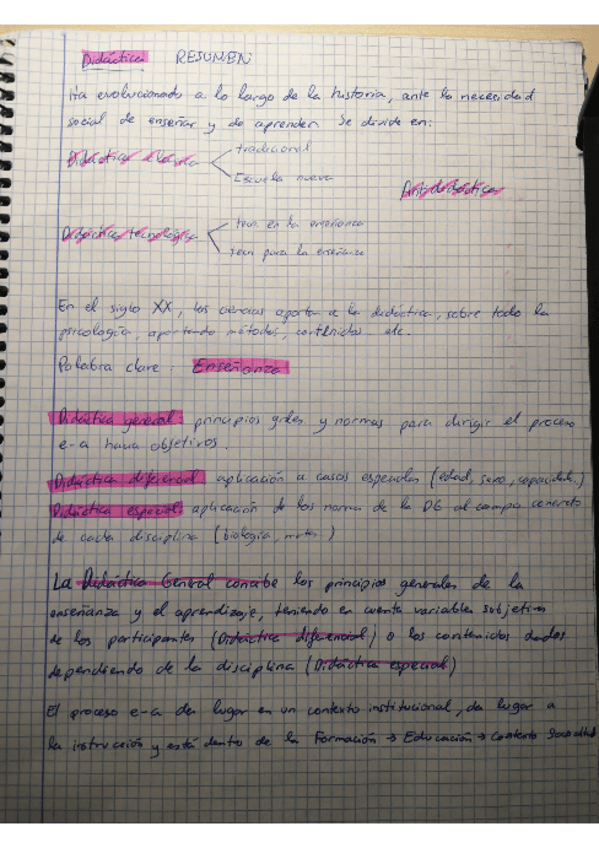 Didáctica RESUMEN
Ha evolucionado a lo largo de la historia, ante la necesidad
social de enseñar y de aprender. Se divide en:
Didáctica clásica
tradicional
Escuela nueva
Antididáctica
Didáctica tecnológica
tecn. en la enseñanza
tecn para la enseñanza
En el siglo XX, las ciencias aportan a la didáctica, sobre todo la
psicología, aportando métodos, contenidos etc.
Palabra clave: Enseñanza
Didáctica general: principios grles y normas para dirigir el proceso
e-a hacia objetivos.
Didáctica diferencial aplicación a casos especiales (edad, sexo, capacidades.)
Didáctica especial: aplicación de las norma de la DG al campo concreto
de cada disciplina (biología, mates)
La Didáctica General concibe los principios generales de la
enseñanza y el aprendizaje, teniendo en cuenta variables subjetivas
de los participantes (Didáctica diferencial) o los contenidos dados
dependiendo de la disciplina (Didáctica especial)
El proceso e-a da lugar en un contexto institucional, da lugar a
la instrucción y está dentro de la Formación → Educación → Contexto